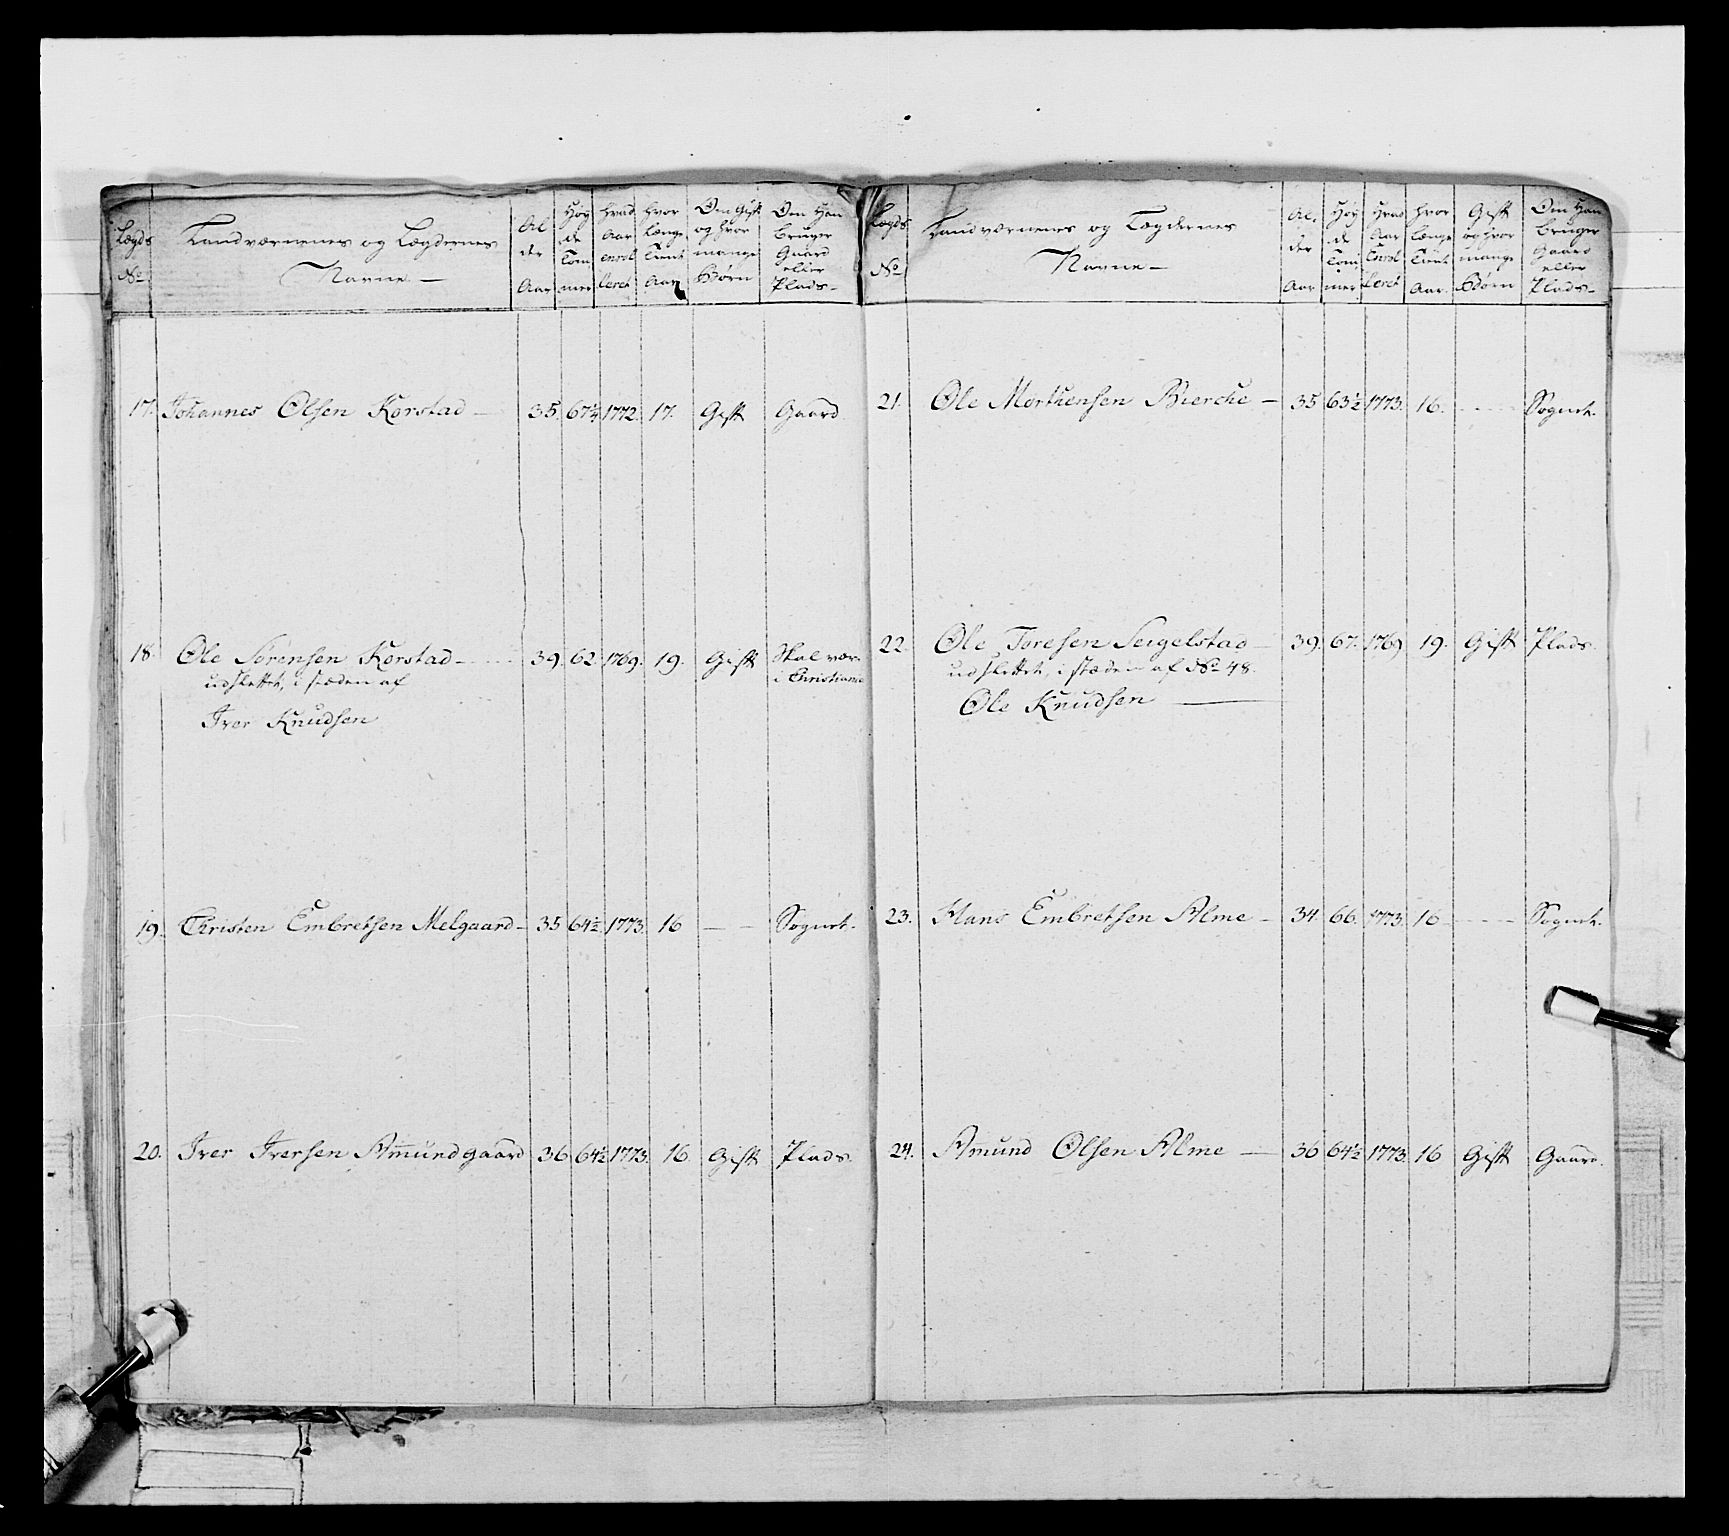 Lægds No | Landværnenes og Lægdernes Navne — | Al der Aar | Høy de Tom mer | Hvad Aar enrol leret | Hvor længe Tient Aar | Om Gift og hvor mange Børn | Om Han bruger Gaard eller Plads —
17. Johannes Olsen Korstad — 35. 67¼ 1772. 17. Gift Gaard
18. Ole Sørensen Korstad — 39. 62. 1769. 19. Gift Skal vær.
udslettet, i stæden af i Christiania
Iver Knudsen
19. Christen Embretsen Melgaard — 35 64½ 1773. 16 — — Sognet.
20. Iver Iversen Amundgaard 36 64½ 1773. 16 Gift Plads
Lægds No | Landværnenes og Lægdernes Navne — | Al, der Aar | Høy de Tom, mer | Hvad Aar Enrol leret | Hvor længe Tient Aar. | Gift og hvor mange Børn | Om Han bruger Gaard eller Plads —
21. Ole Morthensen Bierche — 35 63½ 1773. 16. Sognet.
22. Ole Toresen Seigelstad — 39. 67. 1769 19. Gift Plads.
udslettet, i stæden af No 48.
Ole Knudsen —
23. Hans Embretsen Alme — 34 66. 1773. 16 Sognet.
24. Amund Olsen Alme — 36 64½ 1773. 16 Gift Gaard.